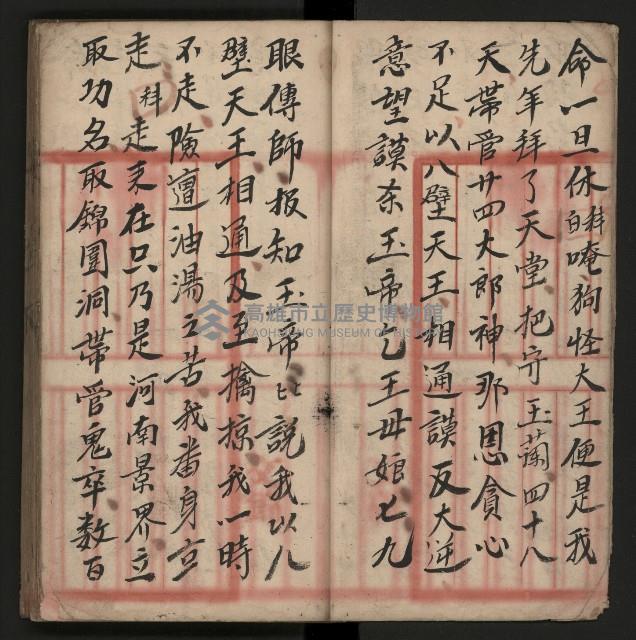 命一旦休科白唵狗怪大王便是我
先年拜了天堂把守玉蘭四十八
天帶管廿四大郎神那恩貪心
不足以八壁天王相通謨反大逆
意望謨奈玉帝乞王毋娘七九
眼傳師报知玉帝匕說我以八
壁天王相通及至擒掠我一時
不走險遭油湯之苦我畨身立
走科走來在只乃是河南景界立
取功名取錦圍洞帶管鬼卒数百
高雄市立歷史博物館
KAOHSIUNG MUSEUM OF HISTORY